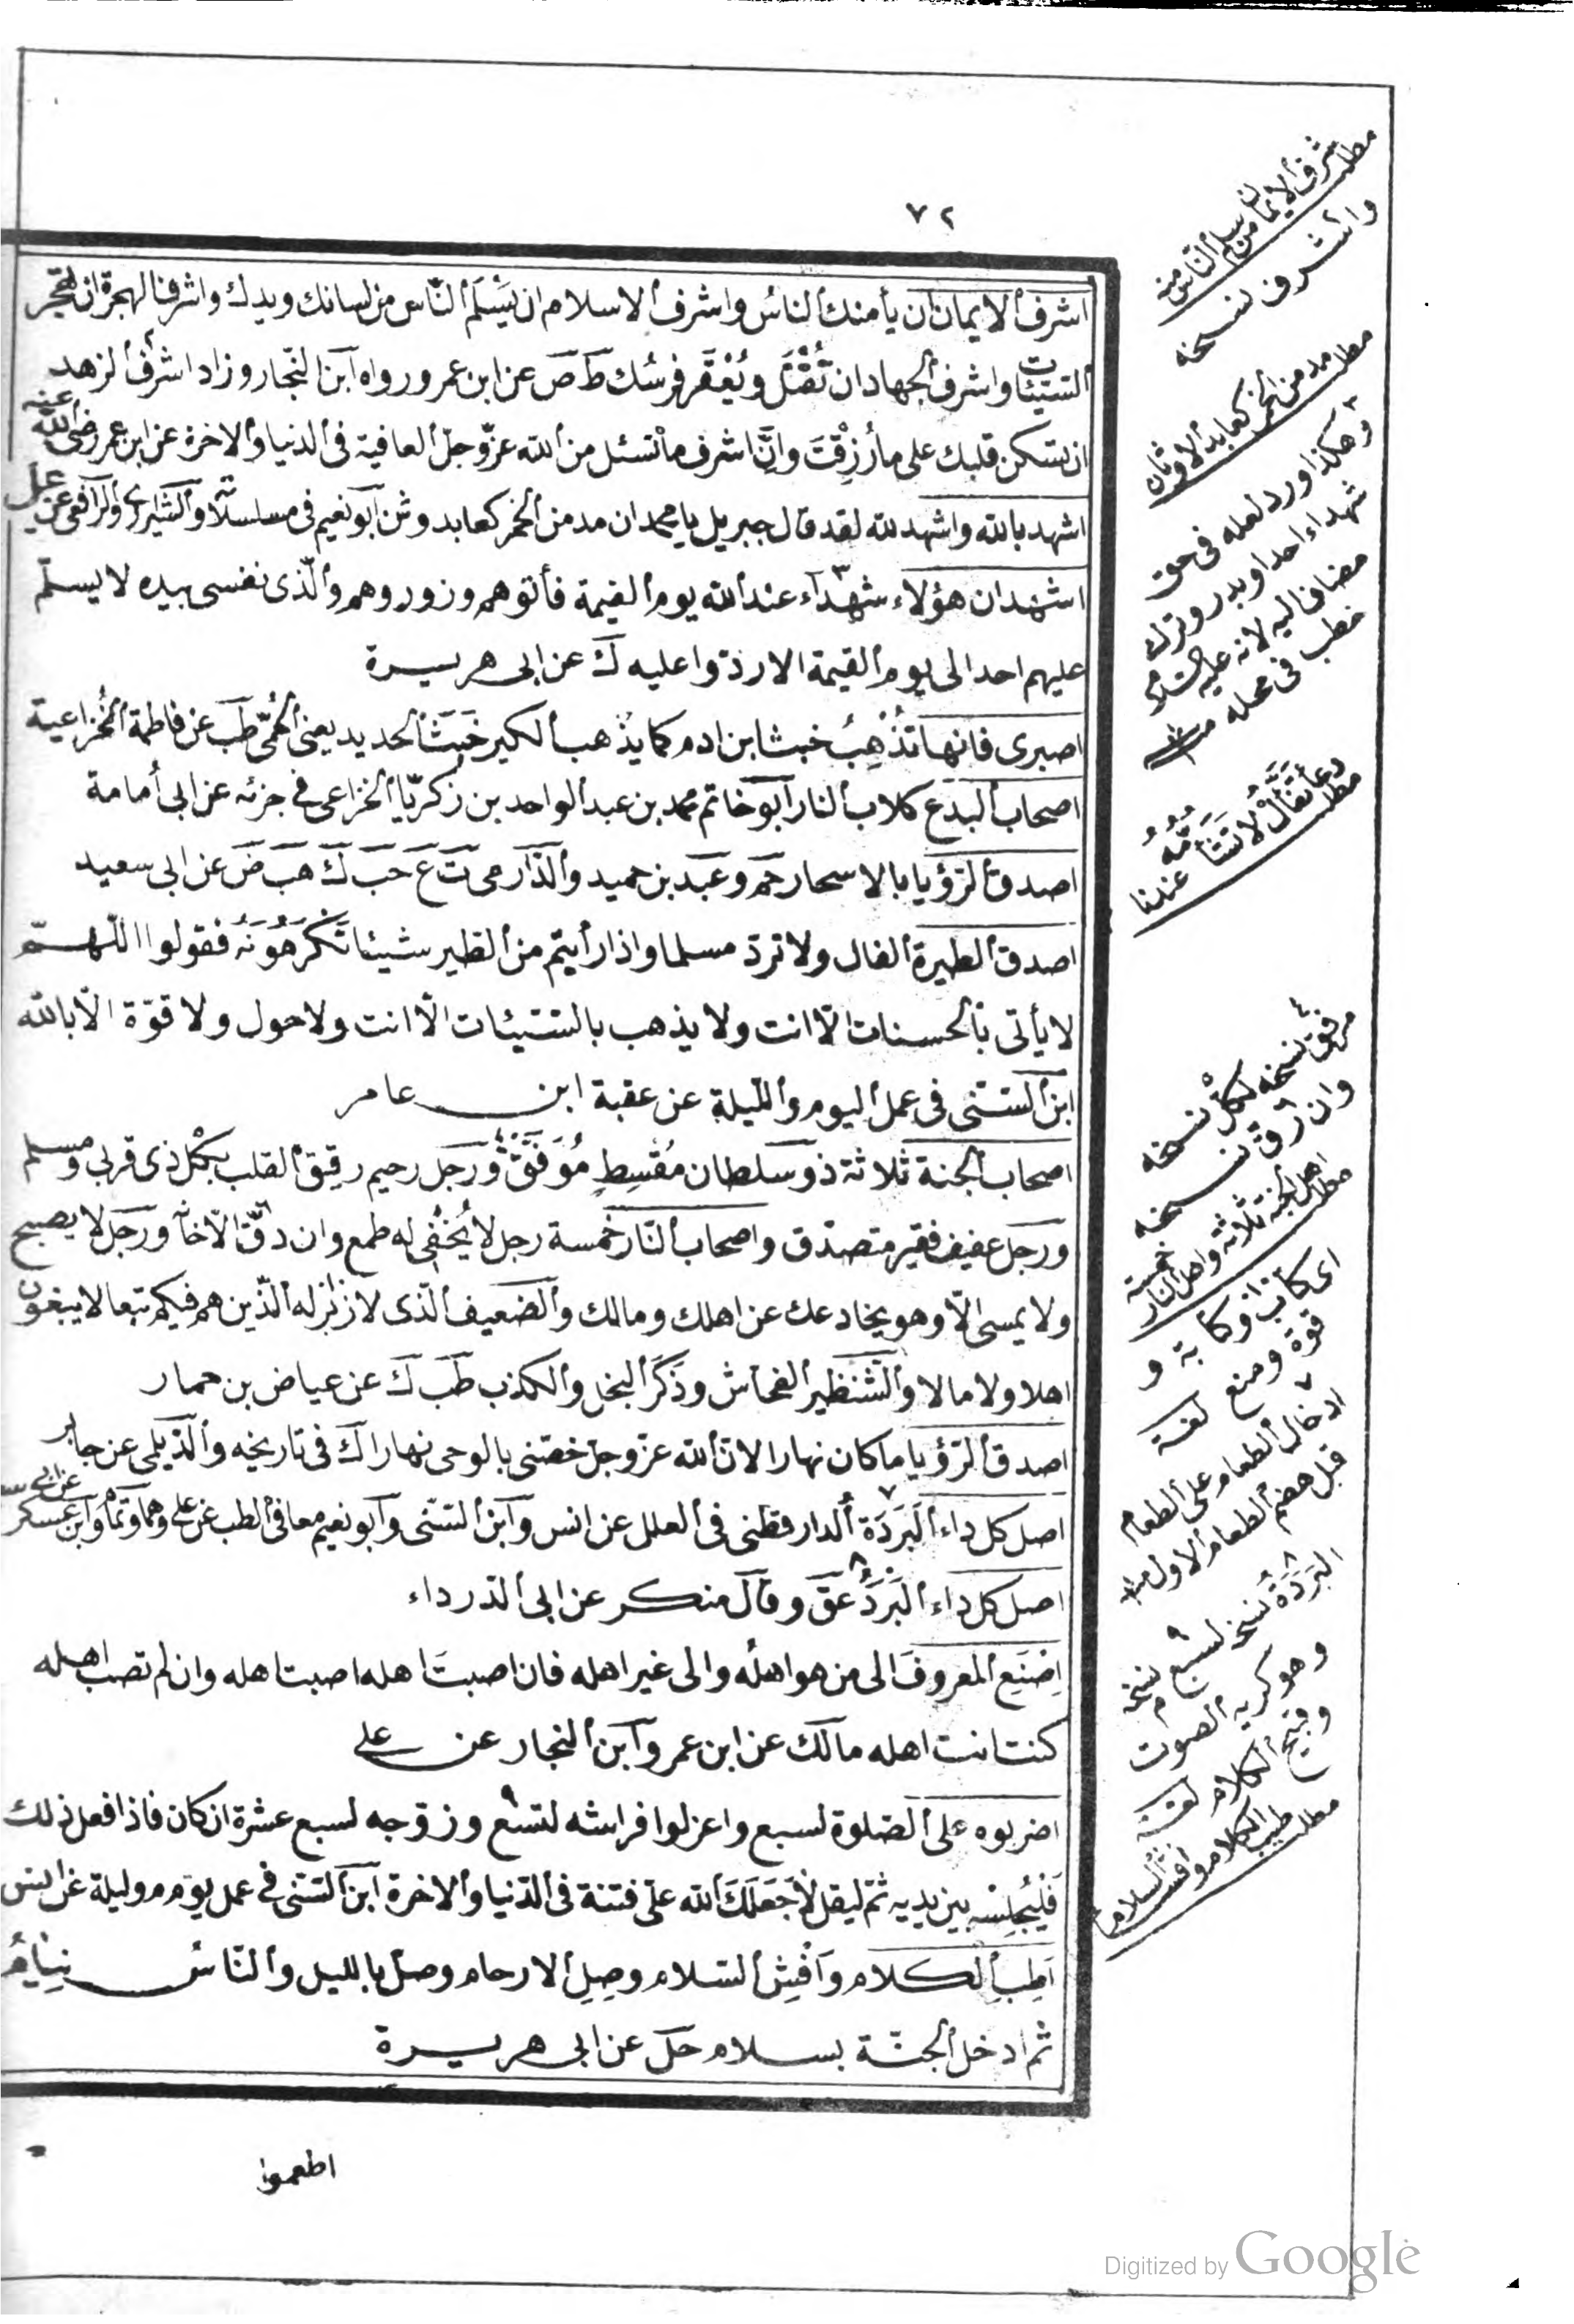 ٧٢
اشرف الايمان ان يأمنك الناس واشرف الاسلام ان يَسْلَم النّاس من لسانك ويدك واشرف الهجرة ان تهجر
السيّئات واشرف الجهاد ان تُقْتَل ويُعْقَر فرسُك طَ صَ عن ابن عمر ورواه ابن النّجار وزاد اشرف الزهد
ان يسكن قلبك على ما رُزِقْتَ وانّ اشرف ما تسئل من الله عزّ وجلّ العافية فى الدنيا والاخرة عن ابن عمر رضى الله عنه
اشهد بالله واشهد لله لقد قال جبريل يا محمد ان مدمن الخمر كعابد وثن ابو نعيم فى مسلسلاته والشيرازى والرافعى عن على
اشهد ان هؤلاء شهدآء عند الله يوم القيمة فأتوهم وزوروهم والّذى نفسى بيده لا يسلّم
عليهم احد الى يوم القيمة الا ردّوا عليه كَ عن ابى هريرة
اصبرى فانها تُذْهِبُ خبث ابن ادم كما يُذْهب الكير خَبَثَ الحديد يعنى الحُمّى طَب عن فاطمة الخُزاعية
اصحاب البدع كلاب النار ابو حاتم محمد بن عبد الواحد بن زكريّا الخزاعى فى جزئه عن ابى اُمامة
اصدق الرّؤيا بالاسحار حَم وعَبد بن حميد والدّارمى تَ عَ حَب كَ هَب ضَ عن ابى سعيد
اصدق الطيرة الفال ولا تردّ مسلما واذا رأيتم من الطير شيئا تَكْرَهُونَهُ فقولوا اللّهمّ
لا يأتى بالحسنات الّا انت ولا يذهب بالسّيئات الّا انت ولا حول ولا قوّة الّا بالله
ابن السّنى فى عمل اليوم والّليلة عن عقبة ابن عامر
اصحاب الجنة ثلاثة ذو سلطان مُقْسِطٍ مُوَفَّق ورَجل رحيم رقيق القلب بكل ذى قربى ومسلم
ورجل عفيف فقير متصدّق واصحاب النّار خمسة رجل لا يُخْفى له طمع وان دقّ الّا خانه ورَجل لا يصبح
ولا يمسى الّا وهو يخادعك عن اهلك ومالك والضعيف الّذى لا زَبْرَ له الّذين هم فيكم تبعا لا يبغون
اهلا ولا مالا والشّنظير الفحاش وذَكَر البخل والكذب طَب كَ عن عياض بن حمار
اصدق الرّؤيا ما كان نهارا لان الله عزّ وجلّ خصّنى بالوحى نهارا كَ فى تاريخه والدّيلمى عن جابر
اصل كل داء البَرَدَة الدارقطنى فى العلل عن انس وابن السّنّى وابو نعيم معا فى الطب عن على وهما وتمام وابن عسكر عن ابى س
اصل كل داء البَرَدُ عَق وقال منكر عن ابى الدّرداء
اِصْنَع المعروفَ الى من هو اهلُه والى غير اهله فان اصبتَ اهله اصبت اهله وان لم تصب اهله
كنت انت اهله مالك عن ابن عمر وابن النجار عن على
اضربوه على الصّلوة لسبع واعزلوا فراشه لتسْع وزوّجه لسبع عشرة ان كان فاذا فعل ذلك
فَلْيُجْلِسْه بين يديه ثمّ ليقل لا جَعَلَكَ الله علىّ فتنة فى الدّنيا والاخرة ابن السّنى فى عمل يوم وليلة عن انس
اَطِبِ الكلام واَفْشِ السّلام وصِلِ الارحام وصلّ بالليل والنّاس نِيَامٌ
ثم ادخل الجنّة بسلام حَل عن ابى هريرة
اطعموا
مطلب شرف الايمان من سلم النّاس منه
واشرف نسخه
مطلب مدمن الخمر كعابد الاوثان
وهكذا ورد لعله فى حق
شهداء احد او بدر وترك
مضاف اليه لانه عليه السلام
خطب فى محله
مطلب
عندنا
مرفق نسخه لكل نسخه
وان رق نسخه
مطلب اهل الجنة ثلاثة واهل النار خمسة
اى كتاب وكتابة و
قوة ومنع لغة
ادخال الطعام على الطعام
قبل هضم الطعام الاول
البَرَدَة نسخه لسبع نسخه
وهو كريه الصوت
وقبيح الكلام لغة
مطلب طيب الكلام وافشاء السلام
Digitized by Google